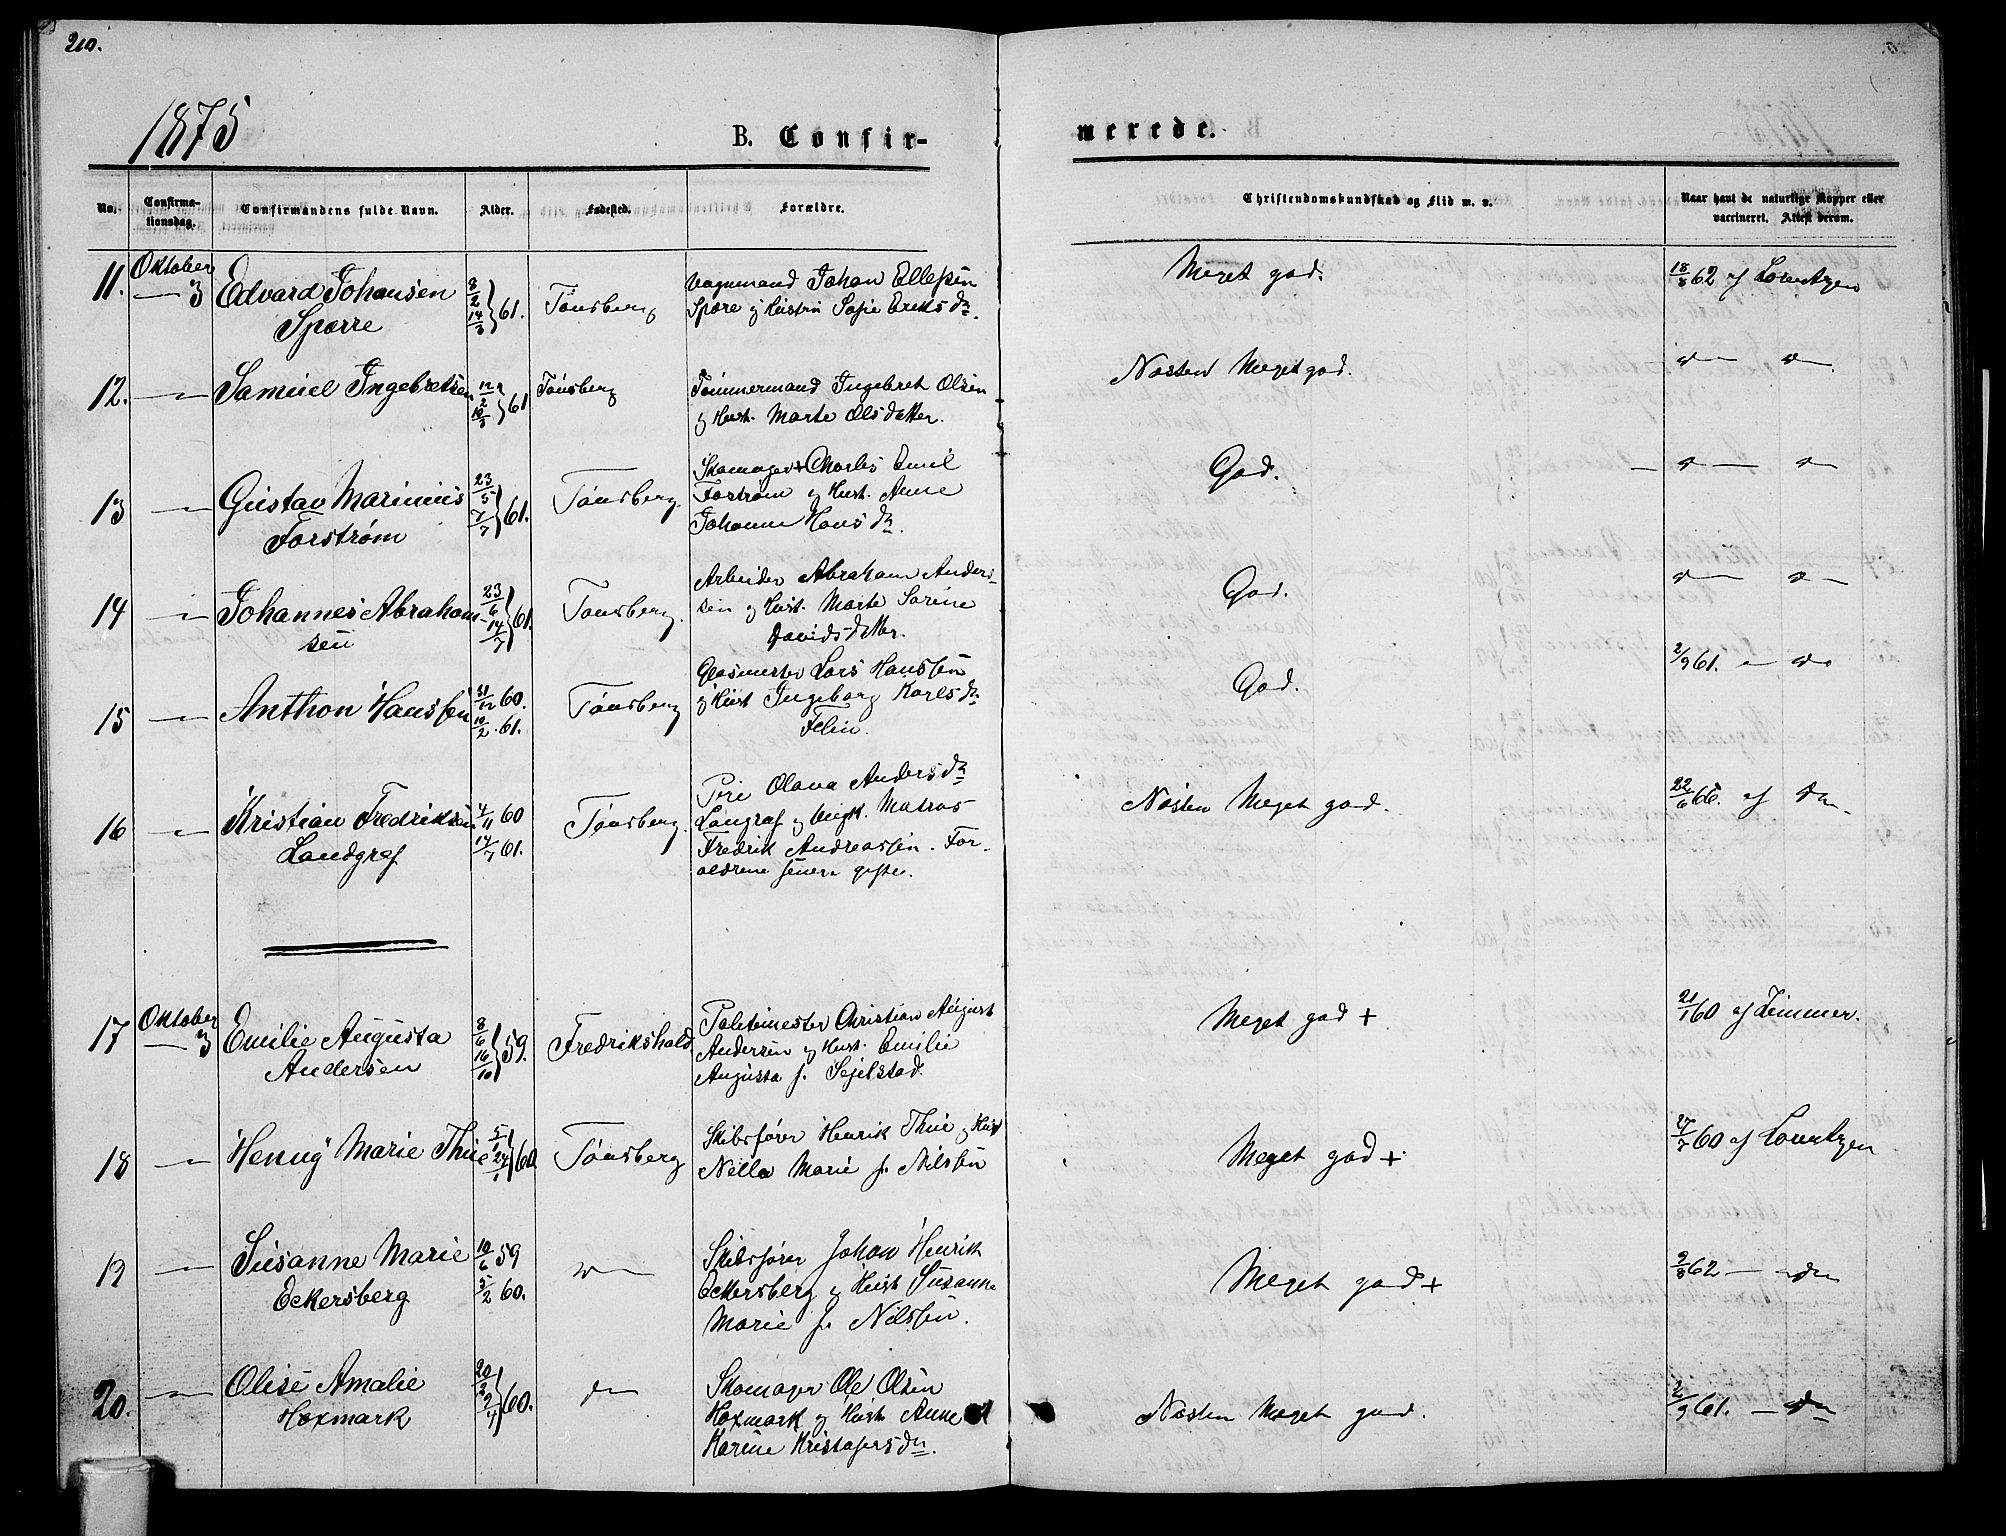 210.
1875
B. Confir-
merede.
No.
Confirma-
tionsdag.
Confirmandens fulde Navn.
Alder.
Fødested.
Forældre.
Christendomskundskab og Flid m. v.
Naar havt de naturlige Kopper eller
vaccineret. Attest derom.
11. Oktober 3 Edvard Johansen Spærre 8/2 14/3 } 61. Tønsberg
Vognmand Johan Ellefsen
Spære og Hustru Sofie Eriksdr.
Meget god. 18/8 62 af Lorentzen
12. — Samuel Ingebretsen 12/2 10/3 } 61 Tønsberg
Tømmermand Ingebret Olsen
og Hust. Marte Olsdatter.
Næsten Meget god. — do — do
13 — Gustav Marinius Forstrøm 23/5 7/7 } 61. Tønsberg.
Skomager Charles Emil
Forstrøm og Hust. Anne
Johanne Hansdr.
God. — do — do
14 — Johannes Abraham
sen 23/6 14/7 } 61. Tønsberg.
Arbeider Abraham Anders-
sen og Hust. Marte Sorine
Davidsdatter.
God. do — do —
15 — Anthon Hanssen 31/12 60. 10/2 61. Tønsberg
Glasmester Lars Hanssen
og Hust Ingeborg Karlsdr.
Felin.
God. 2/9 61. — do
16 — Kristian Fredriksen Landgraf 4/11 60 14/7 61. Tønsberg.
Pige Olava Andersdr.
Langraf og Ungk. Matros
Fredrik Andreassen. For-
ældrene senere gifte.
Næsten Meget god. 22/6 66. af do
17 Oktober 3 Emilie Augusta Andersen 8/6 16/10 } 59. Fredrikshald
Politimester Christian August
Andersen og Hust. Emilie
Augusta f. Sejelstad.
Meget god + 21/1 60 af Zimmer.
18 — Henny Marie Thue 5/1 24/1 } 60 Tønsberg
Skibsfører Henrik Thue og Hust
Nella Marie f. Nilssen
Meget god + 27/7 60 af Lorentzen
19 — Susanne Marie Eckersberg 10/6 59 5/2 60. do
Skibsfører Johan Henrik
Eckersberg og Hust Susanne
Marie f. Nilssen.
Meget god + 9/8 62 — do
20. — Olise Amalie Hoxmark 20/2 9/4 } 60. do
Skomager Ole Olsen
Hoxmark og Hust. Anne
Karine Kristofersdr.
Næsten Meget god. 2/9 61. — do